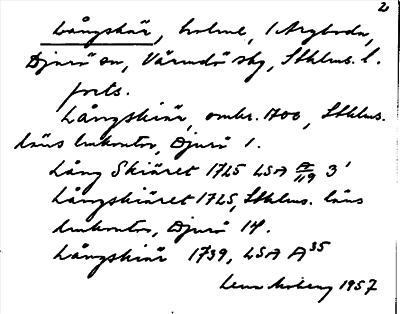 2
Långskär, holme, (Aryboda,
Djurö sn, Värmdö skg, Sthlms. l.
forts.
Långskiär, omkr. 1700, Sthlms.
läns lmkontor, Djurö 1.
Lång Skiäret 1725 LSA A/119 3'
Långskiäret 1725, Sthlms. läns
lmkontor, Djurö 14.
Långskiär 1739, LSA A35
Lena Moberg 1957